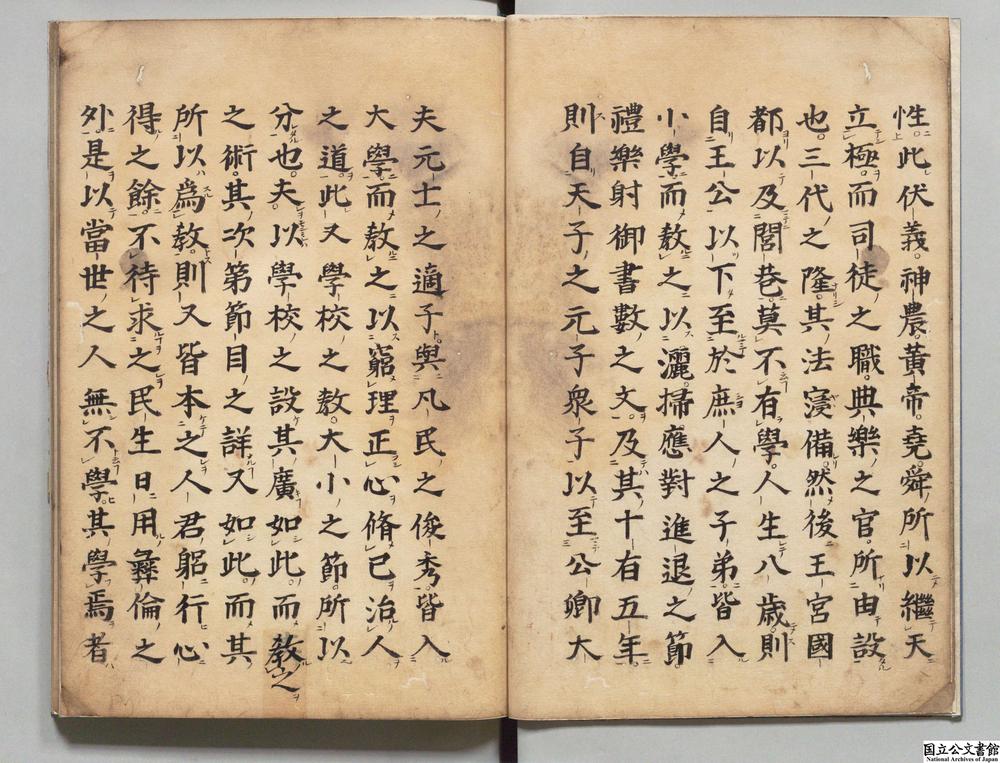 性此伏義神農黃帝堯舜所以繼天
立極而司徒之職典樂之官所由設
也三代之隆其法寖備然後王宮國
都以及閭巷莫不有學人生八歲則
自王公以下至於庶人之子弟皆入
小學而敎之以灑掃應對進退之節
禮樂射御書數之文及其十有五年
則自天子之元子衆子以至公卿大
夫元士之適子與凡民之俊秀皆入
大學而敎之以窮理正心脩己治人
之道此又學校之敎大小之節所以
分也夫以學校之設其廣如此而敎之
之術其次第節目之詳又如此而其
所以爲敎則又皆本之人君躬行心
得之餘不待求之民生日用彝倫之
外是以當世之人無不學其學焉者
国立公文書館
National Archives of Japan